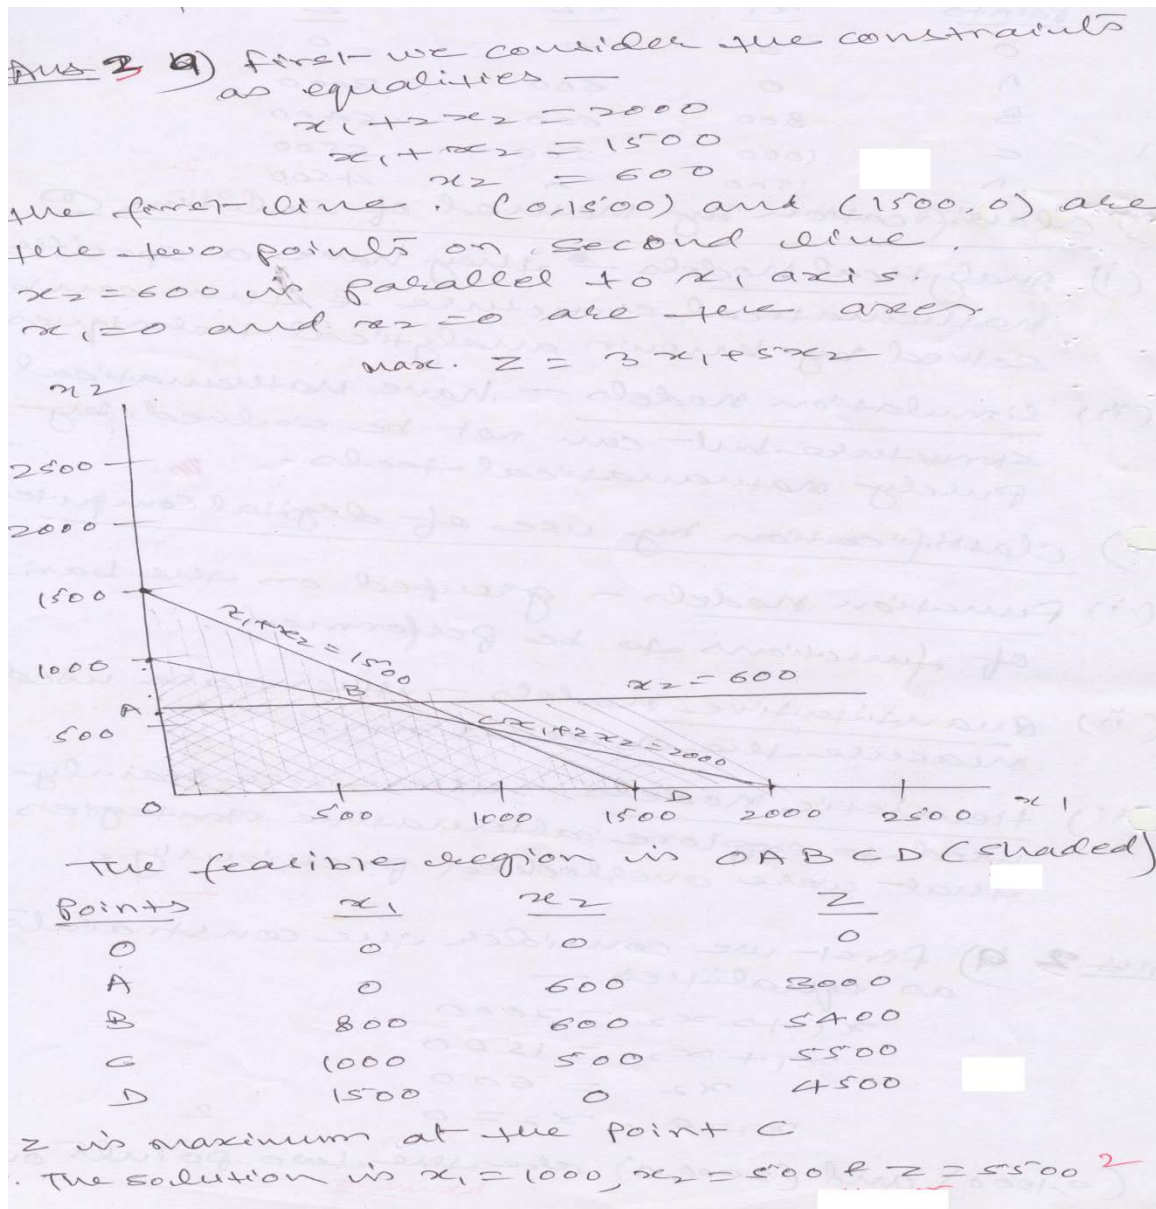 Ans 2 a) first we consider the constraints
as equalities —
x1 + 2x2 = 2000
x1 + x2 = 1500
x2 = 600
the first line. (0,1500) and (1500,0) are
the two points on second line.
x2 = 600 is parallel to x1 axis.
x1 = 0 and x2 = 0 are the axes
max. Z = 3x1 + 5x2
x2
2500
2000
1500
x1 + x2 = 1500
1000
B
x2 = 600
A
C
x1 + 2x2 = 2000
500
O
500
1000
1500
D
2000
2500
x1
The feasible region is OABCD (shaded)
Points x1 x2 Z
O 0 0 0
A 0 600 3000
B 800 600 5400
C 1000 500 5500
D 1500 0 4500
Z is maximum at the point C
. The solution is x1 = 1000, x2 = 500 & Z = 5500 2